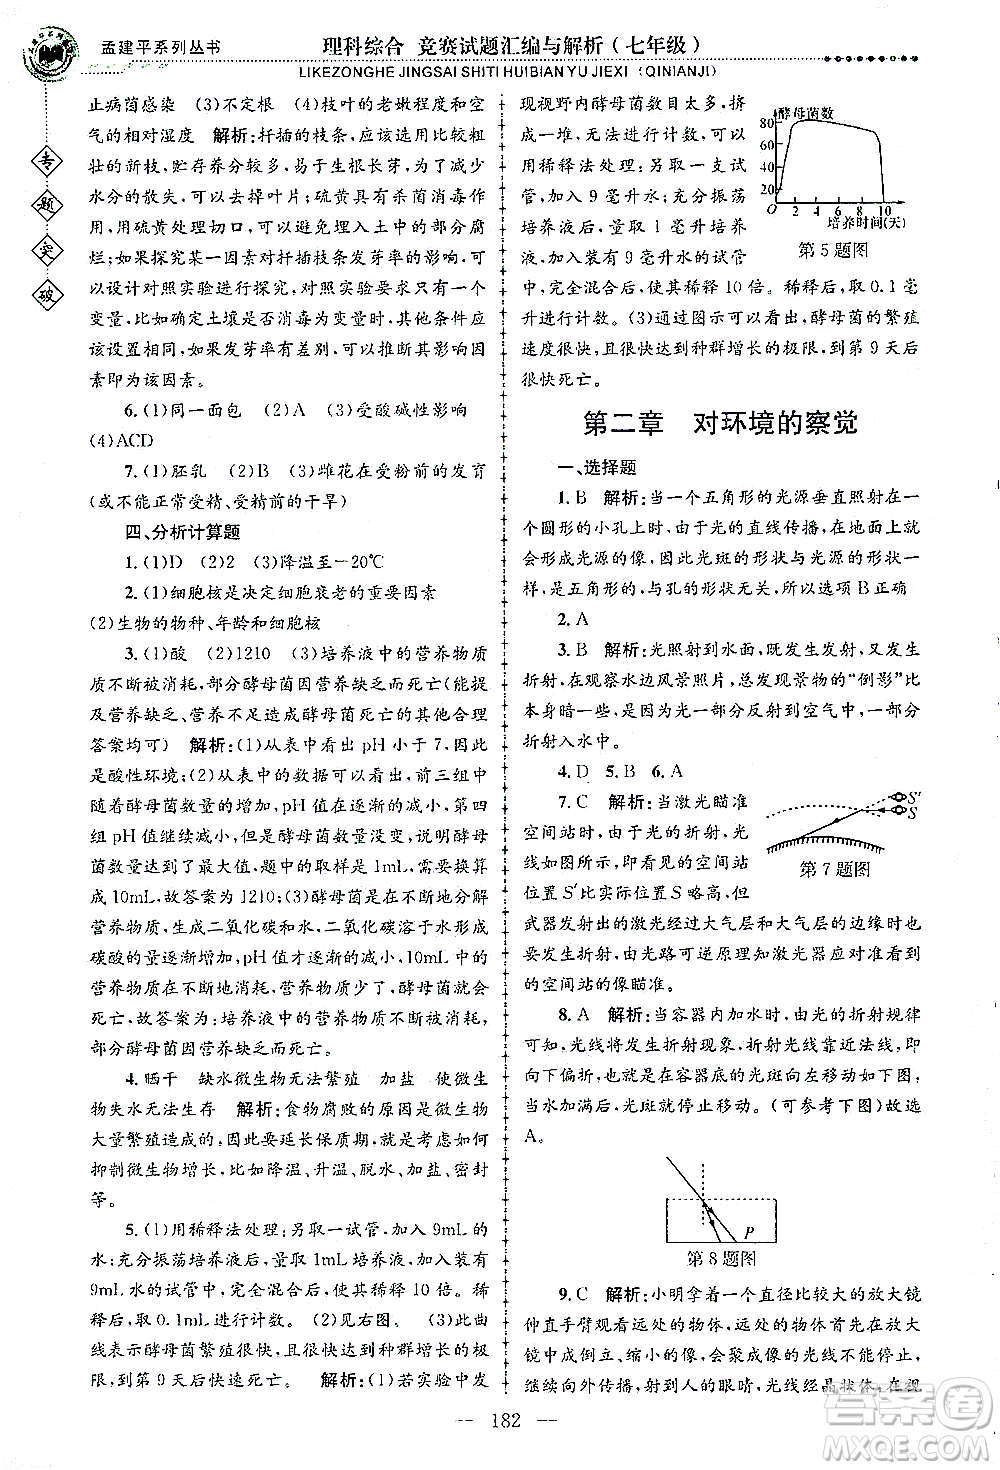 孟建平系列丛书
理科综合 竞赛试题汇编与解析(七年级)
LIKEZONGHE JINGSAI SHITI HUIBIAN YU JIEXI (QINIANJI)
专
题
突
破
止病菌感染 (3)不定根 (4)枝叶的老嫩程度和空
气的相对湿度 解析:扦插的枝条,应该选用比较粗
壮的新枝,贮存养分较多,易于生根长芽,为了减少
水分的散失,可以去掉叶片;硫黄具有杀菌的作用,
用硫黄处理切口,可以避免插入土中的部分腐
烂;如探究某一因素对扦插枝条发芽率的影响,可
以设计对照实验进行探究,对照实验中只能有一个
变量,比如确定土壤是否消毒为变量时,其他条件应
该设为相同。如果发芽率有差别,可以推断其影响因
素即为该因素。
6. (1)同一面包 (2)A (3)受酸碱性影响
(4)ACD
7. (1)胚乳 (2)B (3)雌花在受粉前的发育
(或不能正常受精、受精前的干旱)
四、分析计算题
1. (1)D (2)2 (3)降温至-20℃
2. (1)细胞核是决定细胞衰老的重要因素
(2)生物的物种、年龄和细胞核
3. (1)酸 (2)1210 (3)培养液中的营养物质
质不断被消耗,部分酵母菌因营养缺乏而死亡(能提
及营养缺乏、营养不足造成酵母菌死亡的其他合理
答案均可) 解析:(1)从表中看出 pH 小于 7,因此
是酸性环境;(2)从表中的数据可以看出,前三组中随
着酵母菌数量的增加,pH 值在逐渐的减小,第四
组 pH 值继续减小,但是酵母菌数量不变,说明酵母
菌数量达到了最大值,题中的取样是 1mL,需要换
成 10mL,故答案为 1210;(3)酵母菌在不断地分解
营养物质,生成二氧化碳和水,二氧化碳溶于水形成
碳酸的量逐渐增加,pH 值才逐渐减小。10mL 中的
营养物质在不断地消耗,进而导致部分酵母菌营养
缺乏。故答案为:培养液中的营养物质不断被消耗,
部分酵母菌因营养缺乏而死亡。
4. 晒干 缺水微生物无法繁殖 加盐 使微生
物失水无法生存 解析:食物腐败的原因是微生物
大量繁殖造成的,因此要延长保质期,就要采取措施
抑制微生物增长,比如降温、升温、脱水、加盐、密封
等。
5. (1)用稀释法处理;另取一试管,加入 9mL 的
水;充分振荡培养液,量取 1mL 培养液,加入装有
9mL 水的试管中,完全混合后,即将其稀释 10 倍。稀释后,
取 0.1mL 进行计数。 (2)见右图。 (3)此曲线
表示酵母菌繁殖很快,并达到种群增长的极
限,到第 9 天后快速死亡。 解析:(1)若实验中发
现视野内酵母菌数目太多,挤
成一堆,无法进行计数,要用
稀释法处理;另取一支试
管,加入 9 毫升水;充分振荡
培养液后,量取 1 毫升培养
液,加入装有 9 毫升水的试管
中,完全混合后,即将其稀释 10 倍。稀释后,取 0.1 毫
升进行计数。(3)通过图示可以看出,酵母菌的繁殖
速度很快,且很快达到种群增长的极限,到第 9 天后
很快死亡。
酵母菌数
80
60
40
20
O 2 4 6 8 10
培养时间(天)
第 5 题图
第二章 对环境的察觉
一、选择题
1. B 解析:当一个五角形的光源垂直照射在一
个圆形的小孔上时,由于光的直线传播,在地面上
会形成光源的像,因此光斑的形状与光源的形状一
致,是五角形的,与孔的形状无关,所以选项 B 正确
2. A
3. B 解析:光照射到水面,一定会发生反射、
折射,在观察水边风景照片,总发现景物的“倒影”比
本身暗一些,是因为光一部分反射到空气中,一部分
折射入水中。
4. D 5. B 6. A
7. C 解析:当激光瞄准
空间站时,由于光的折射,光
线如图所示,即看见的空间站
位置 S′比实际位置 S 略高,但
武器发射出的激光经过大气层和大气层的边缘时也
会发生折射,由光路可逆原理可知激光应对着看见
的空间站的像瞄准。
S′
S
第 7 题图
8. A 解析:当容器内加水时,由光的折射规律
可知,将发生折射现象,折射光线靠近法线,即
向下偏折,在容器底的光斑向左移动(如图),
当水加满后停止,光斑就停止移动。(可参考下图)故选
A。
P
第 8 题图
9. C 解析:小明拿着一个直径比较大的放大镜
伸直手臂观看远处的物体,远处的物体首先在放大
镜中成倒立、缩小的像,会聚成像的光线没有消失,
继续向外传播,射到人的眼睛,光线经晶状体,在视
— 182 —
答案圈
MXQE.COM